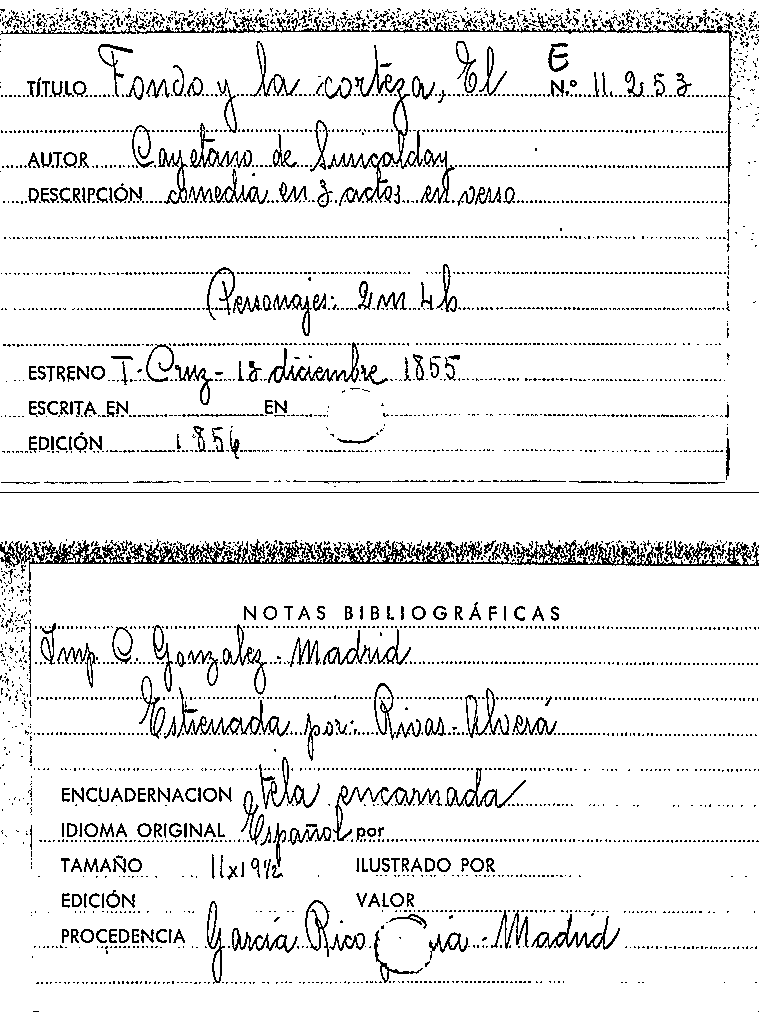 E
TÍTULO Fondo y la corteza, El N.º 11.253
AUTOR Cayetano de Suricalday
DESCRIPCIÓN comedia en 3 actos en verso
Personajes: 2m 4h
ESTRENO T. Cruz - 18 diciembre 1855
ESCRITA EN EN
EDICIÓN 1856
NOTAS BIBLIOGRÁFICAS
Imp. C. Gonzalez - Madrid
Estrenada por: Rivas - Alverá
ENCUADERNACION tela encarnada
IDIOMA ORIGINAL Español por
TAMAÑO 11x19½ ILUSTRADO POR
EDICIÓN VALOR
PROCEDENCIA García Rico - Madrid